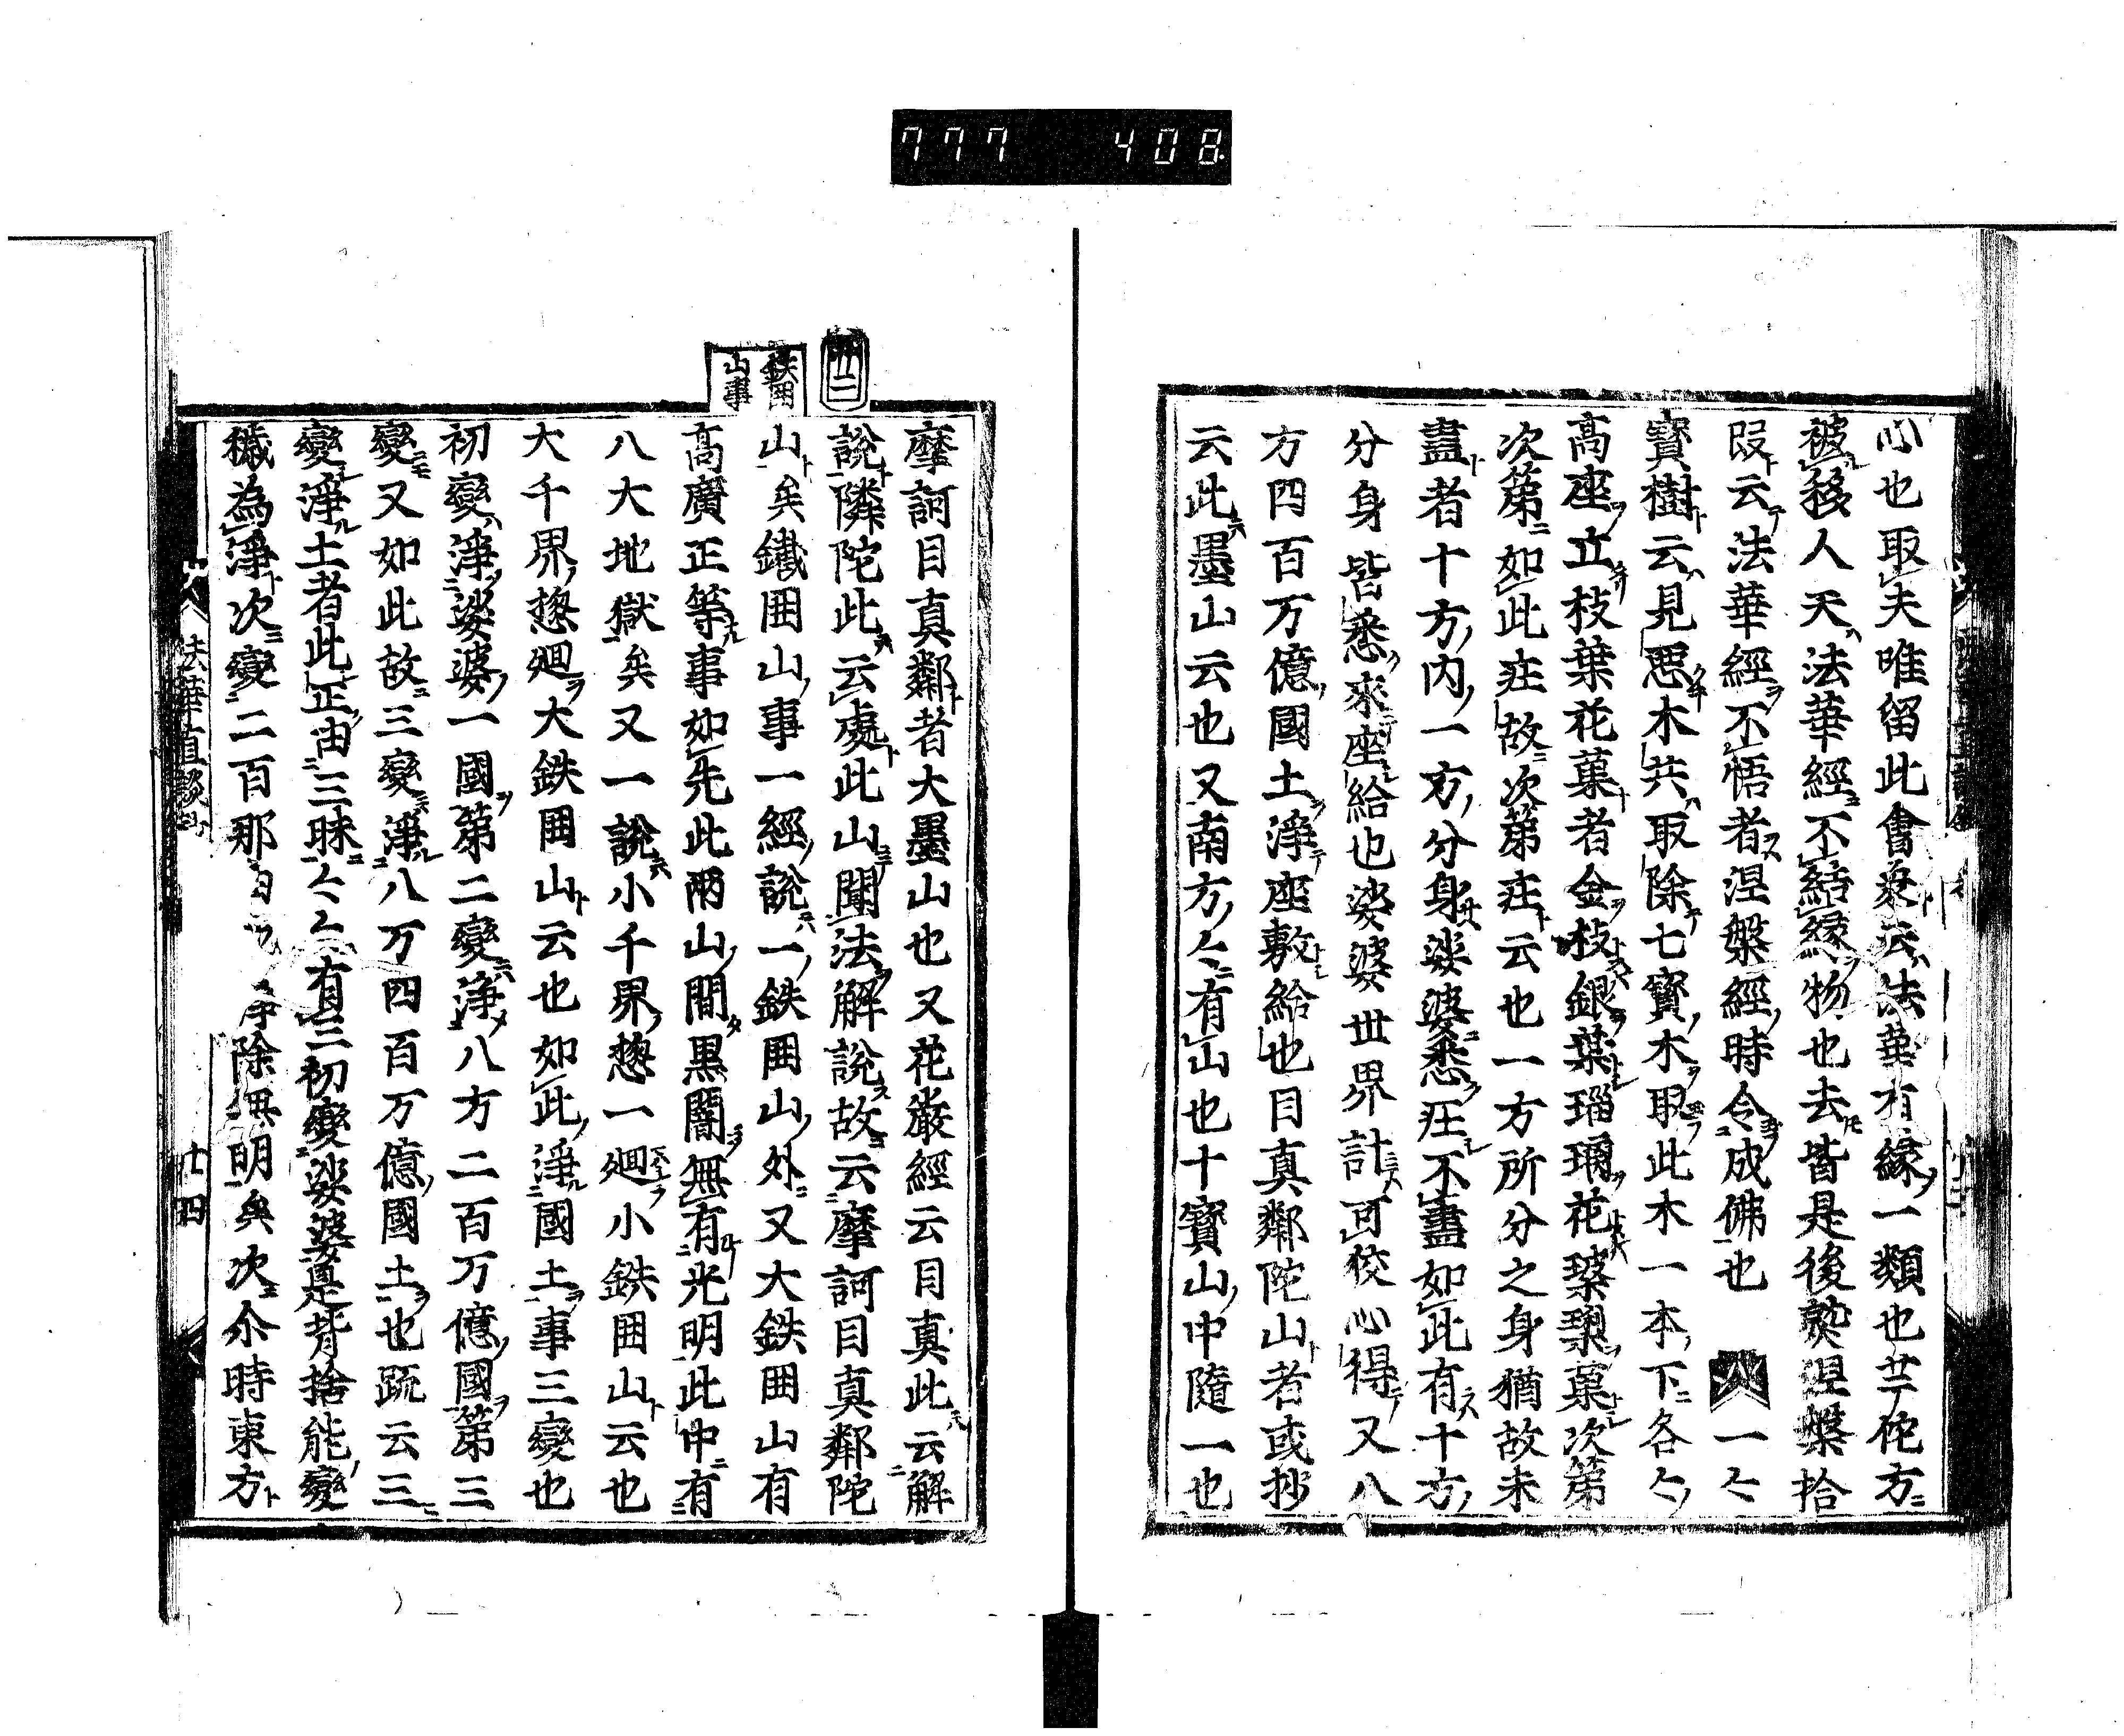 777 408
心也取夫唯留此會衆云法華有縁一類也𦬇佗方
被移人天法華經不結縁物也去皆是後熟涅槃拾
段云法華經不悟者涅槃經時令成佛也 一〻
寶樹云見思木共取除七寶木取此木一本下各〻
高座立枝葉花菓者金枝銀葉瑙瑪花瑹瓈菓次第
次第如此庄故次第庄云也一方所分之身猶故未
盡者十方内一方分身娑婆悉庄不盡如此有十方
分身皆悉來座給也娑婆世界計可狡心得又八
方四百万億國土淨座敷給也目真鄰陀山者或抄
云此墨山云也又南方〻有山也十寶山中隨一也
摩訶目真鄰者大墨山也又花嚴經云目真此云解
說隣陀此云處此山聞法解說故云摩訶目真鄰陀
廿二
鉄囲山事
山矣鐵囲山事一經說一鉄囲山外又大鉄囲山有
高廣正等事如先此兩山間黒闇無有光明此中有
八大地獄矣又一說小千界惣一廻小鉄囲山云也
大千界惣廻大鉄囲山云也如此淨國土事三變也
初變淨娑婆一國第二變淨八方二百万億國第三
變又如此故三變淨八万四百万億國土也䟽云三
變淨土者此正由三昧〻〻有三初變娑婆是背捨能變
穢為淨次變二百那除明矣次尒時東方
法華直談
廿四